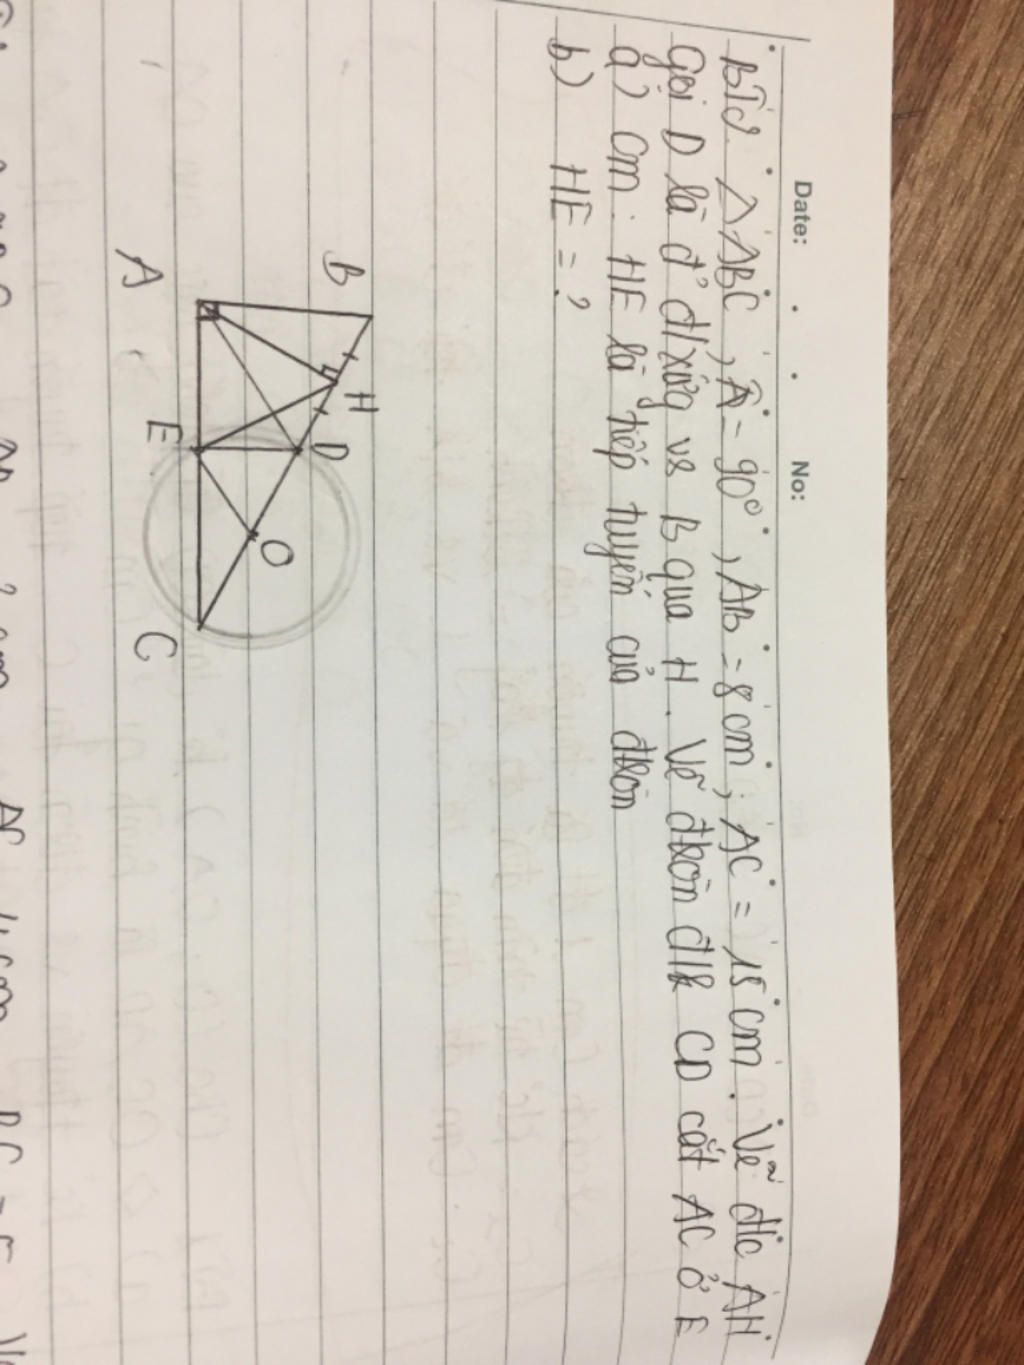 Date: No:
BT2. △ABC, Â = 90°, AB = 8cm, AC = 15 cm. Vẽ đ/c AH.
Gọi D là đ' đ/xứng vs B qua H. Vẽ đtròn đ/k CD cắt AC ở E
a) Cm: HE là tiếp tuyến của đtròn
b) HE = ?
B H D O
A E C